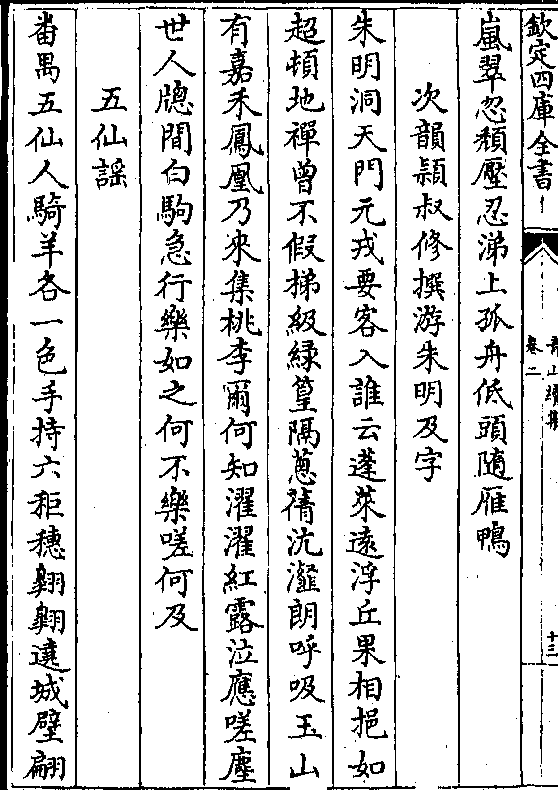 欽定四庫全書
青山續集
卷二
十三
嵐翠忽頽壓忍涕上孤舟低頭随雁鴨
次韻頴叔修撰游朱明及字
朱明洞天門元戎要客入誰云蓬萊逺浮丘果相挹如
超頓地禪曽不假挮級緑篁隔蔥蒨沆瀣朗呼吸玉山
有嘉禾鳳凰乃來集桃李爾何知濯濯紅露泣應嗟塵
世人牕間白駒急行樂如之何不樂嗟何及
五仙謡
畨禺五仙人騎羊各一色手持六秬穗翺翺遶城壁翩